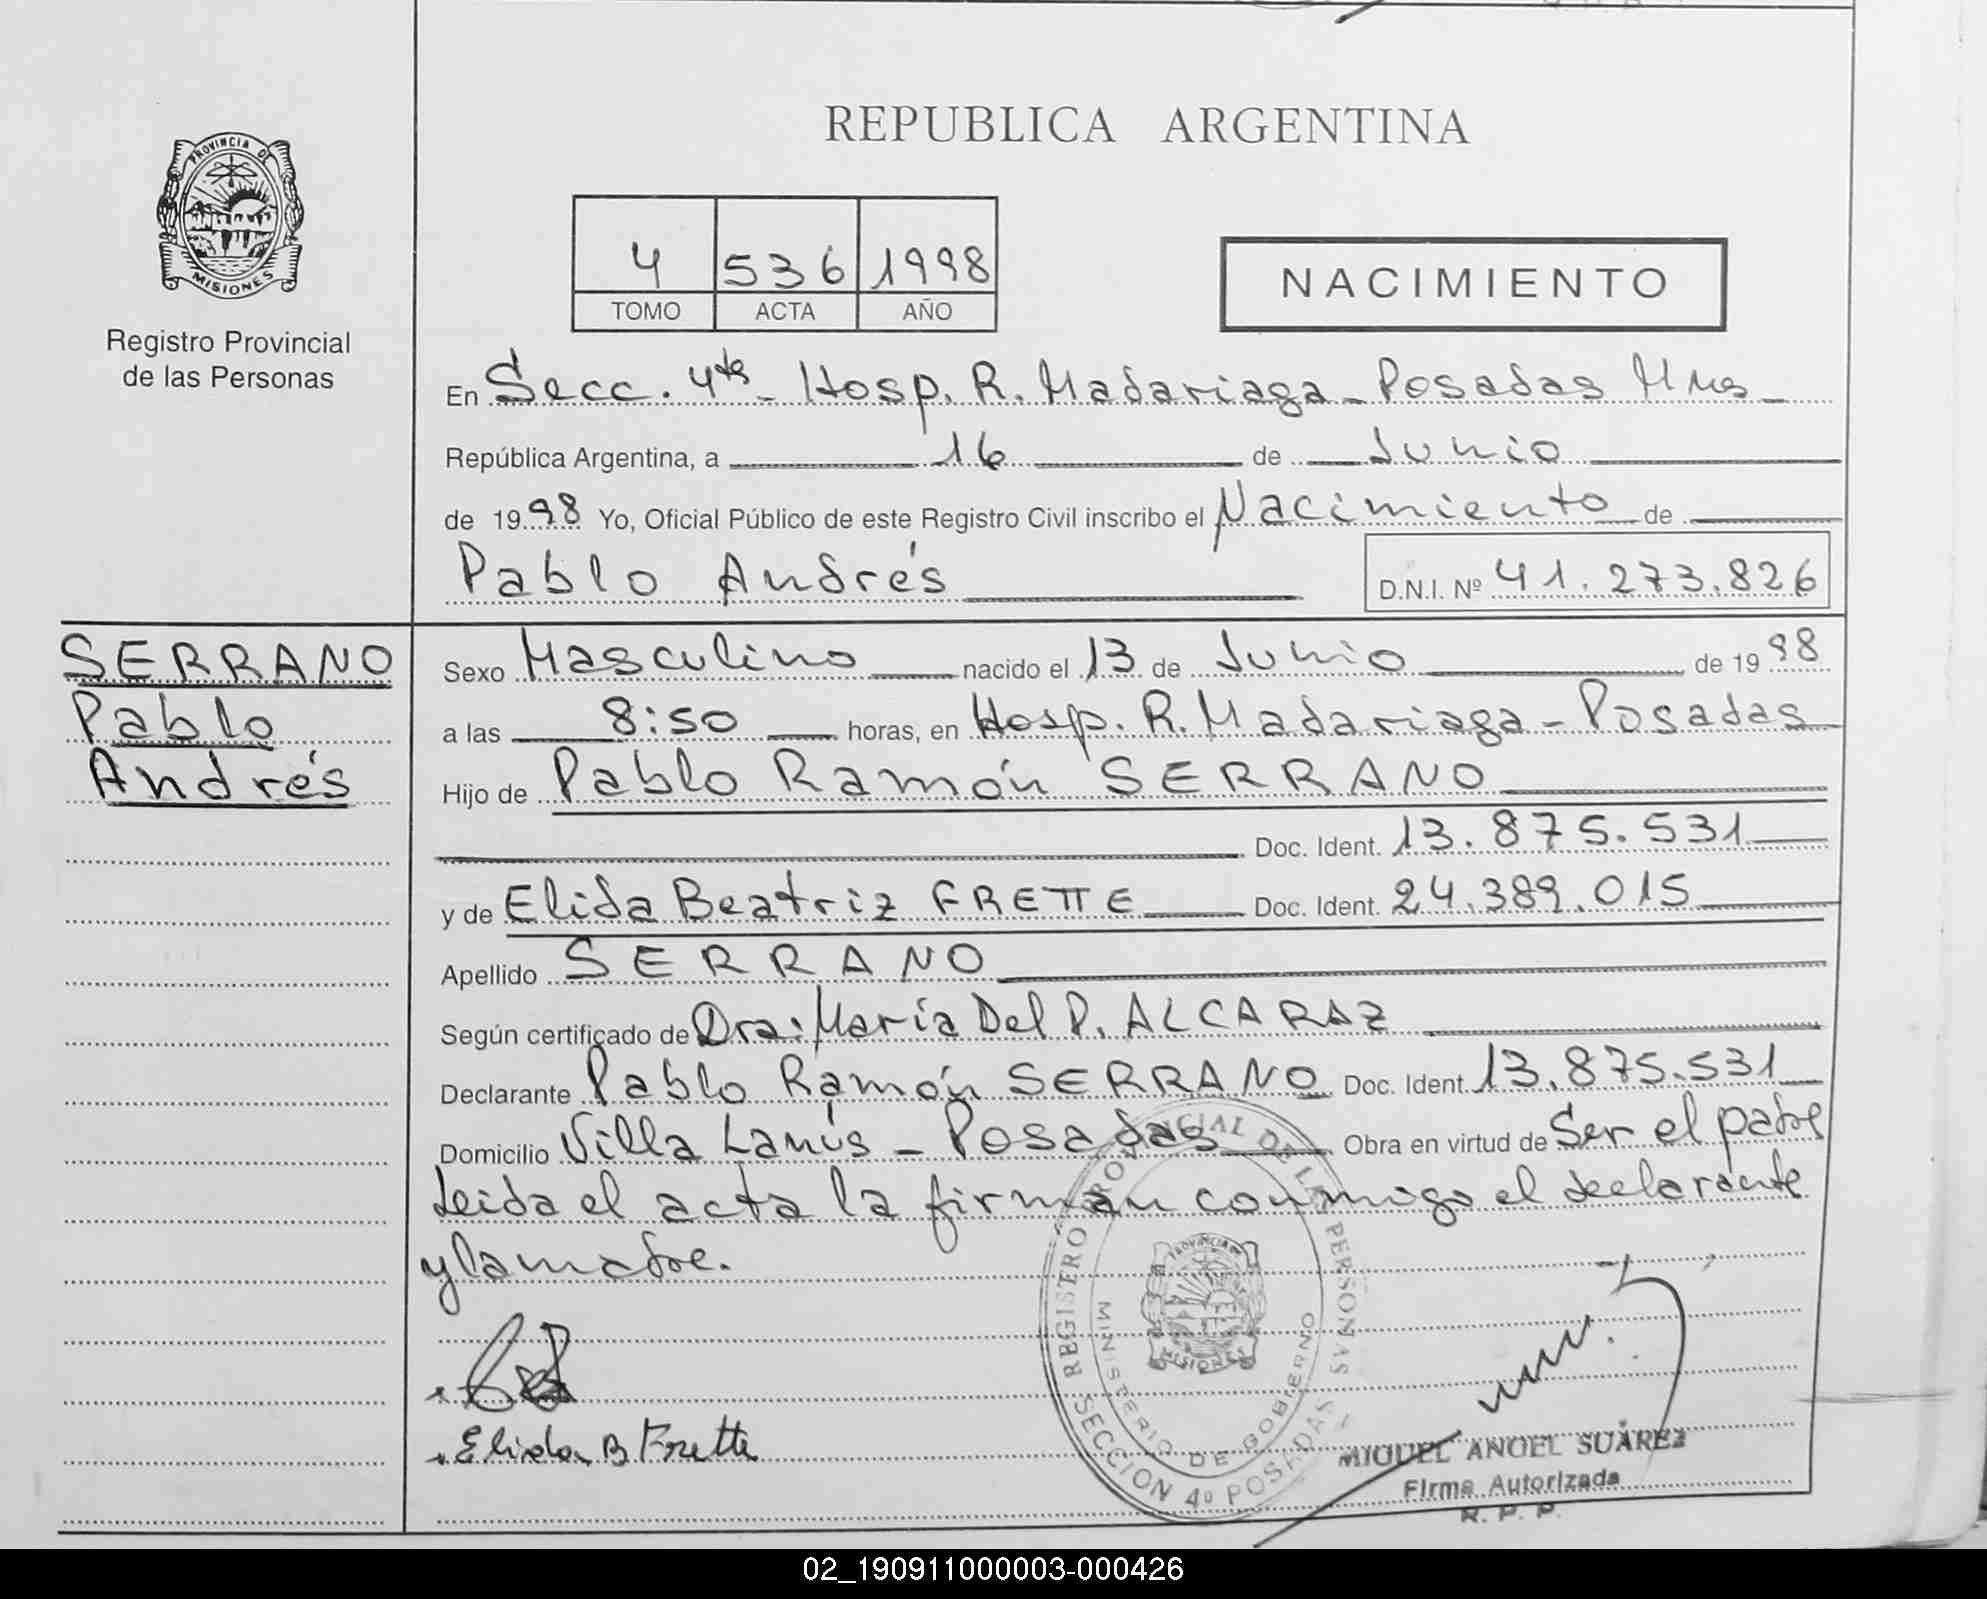 REPUBLICA ARGENTINA
PROVINCIA DE
MISIONES
Registro Provincial
de las Personas
4 536 1998
TOMO ACTA AÑO
NACIMIENTO
En Secc. 4ta - Hosp. R. Madariaga - Posadas Mnes -
República Argentina, a 16 de Junio
de 1998 Yo, Oficial Público de este Registro Civil inscribo el Nacimiento de
Pablo Andrés D.N.I. Nº 41.273.826
SERRANO
Pablo
Andrés
Sexo Masculino nacido el 13 de Junio de 1998
a las 8:50 horas, en Hosp. R. Madariaga - Posadas
Hijo de Pablo Ramón SERRANO
Doc. Ident. 13.875.531
y de Elida Beatriz FRETTE Doc. Ident. 24.389.015
Apellido SERRANO
Según certificado de Dra: María Del P. ALCARAZ
Declarante Pablo Ramón SERRANO Doc. Ident. 13.875.531
Domicilio Villa Lanús - Posadas Obra en virtud de Ser el padre
Leida el acta la firman conmigo el declarante
y la madre.
Elida B Frette
REGISTRO PROVINCIAL DE LAS PERSONAS
MINISTERIO DE GOBIERNO
PROVINCIA DE
MISIONES
SECCION 4º POSADAS
MIGUEL ANGEL SUÁREZ
Firma Autorizada
R. P. P.
02_190911000003-000426